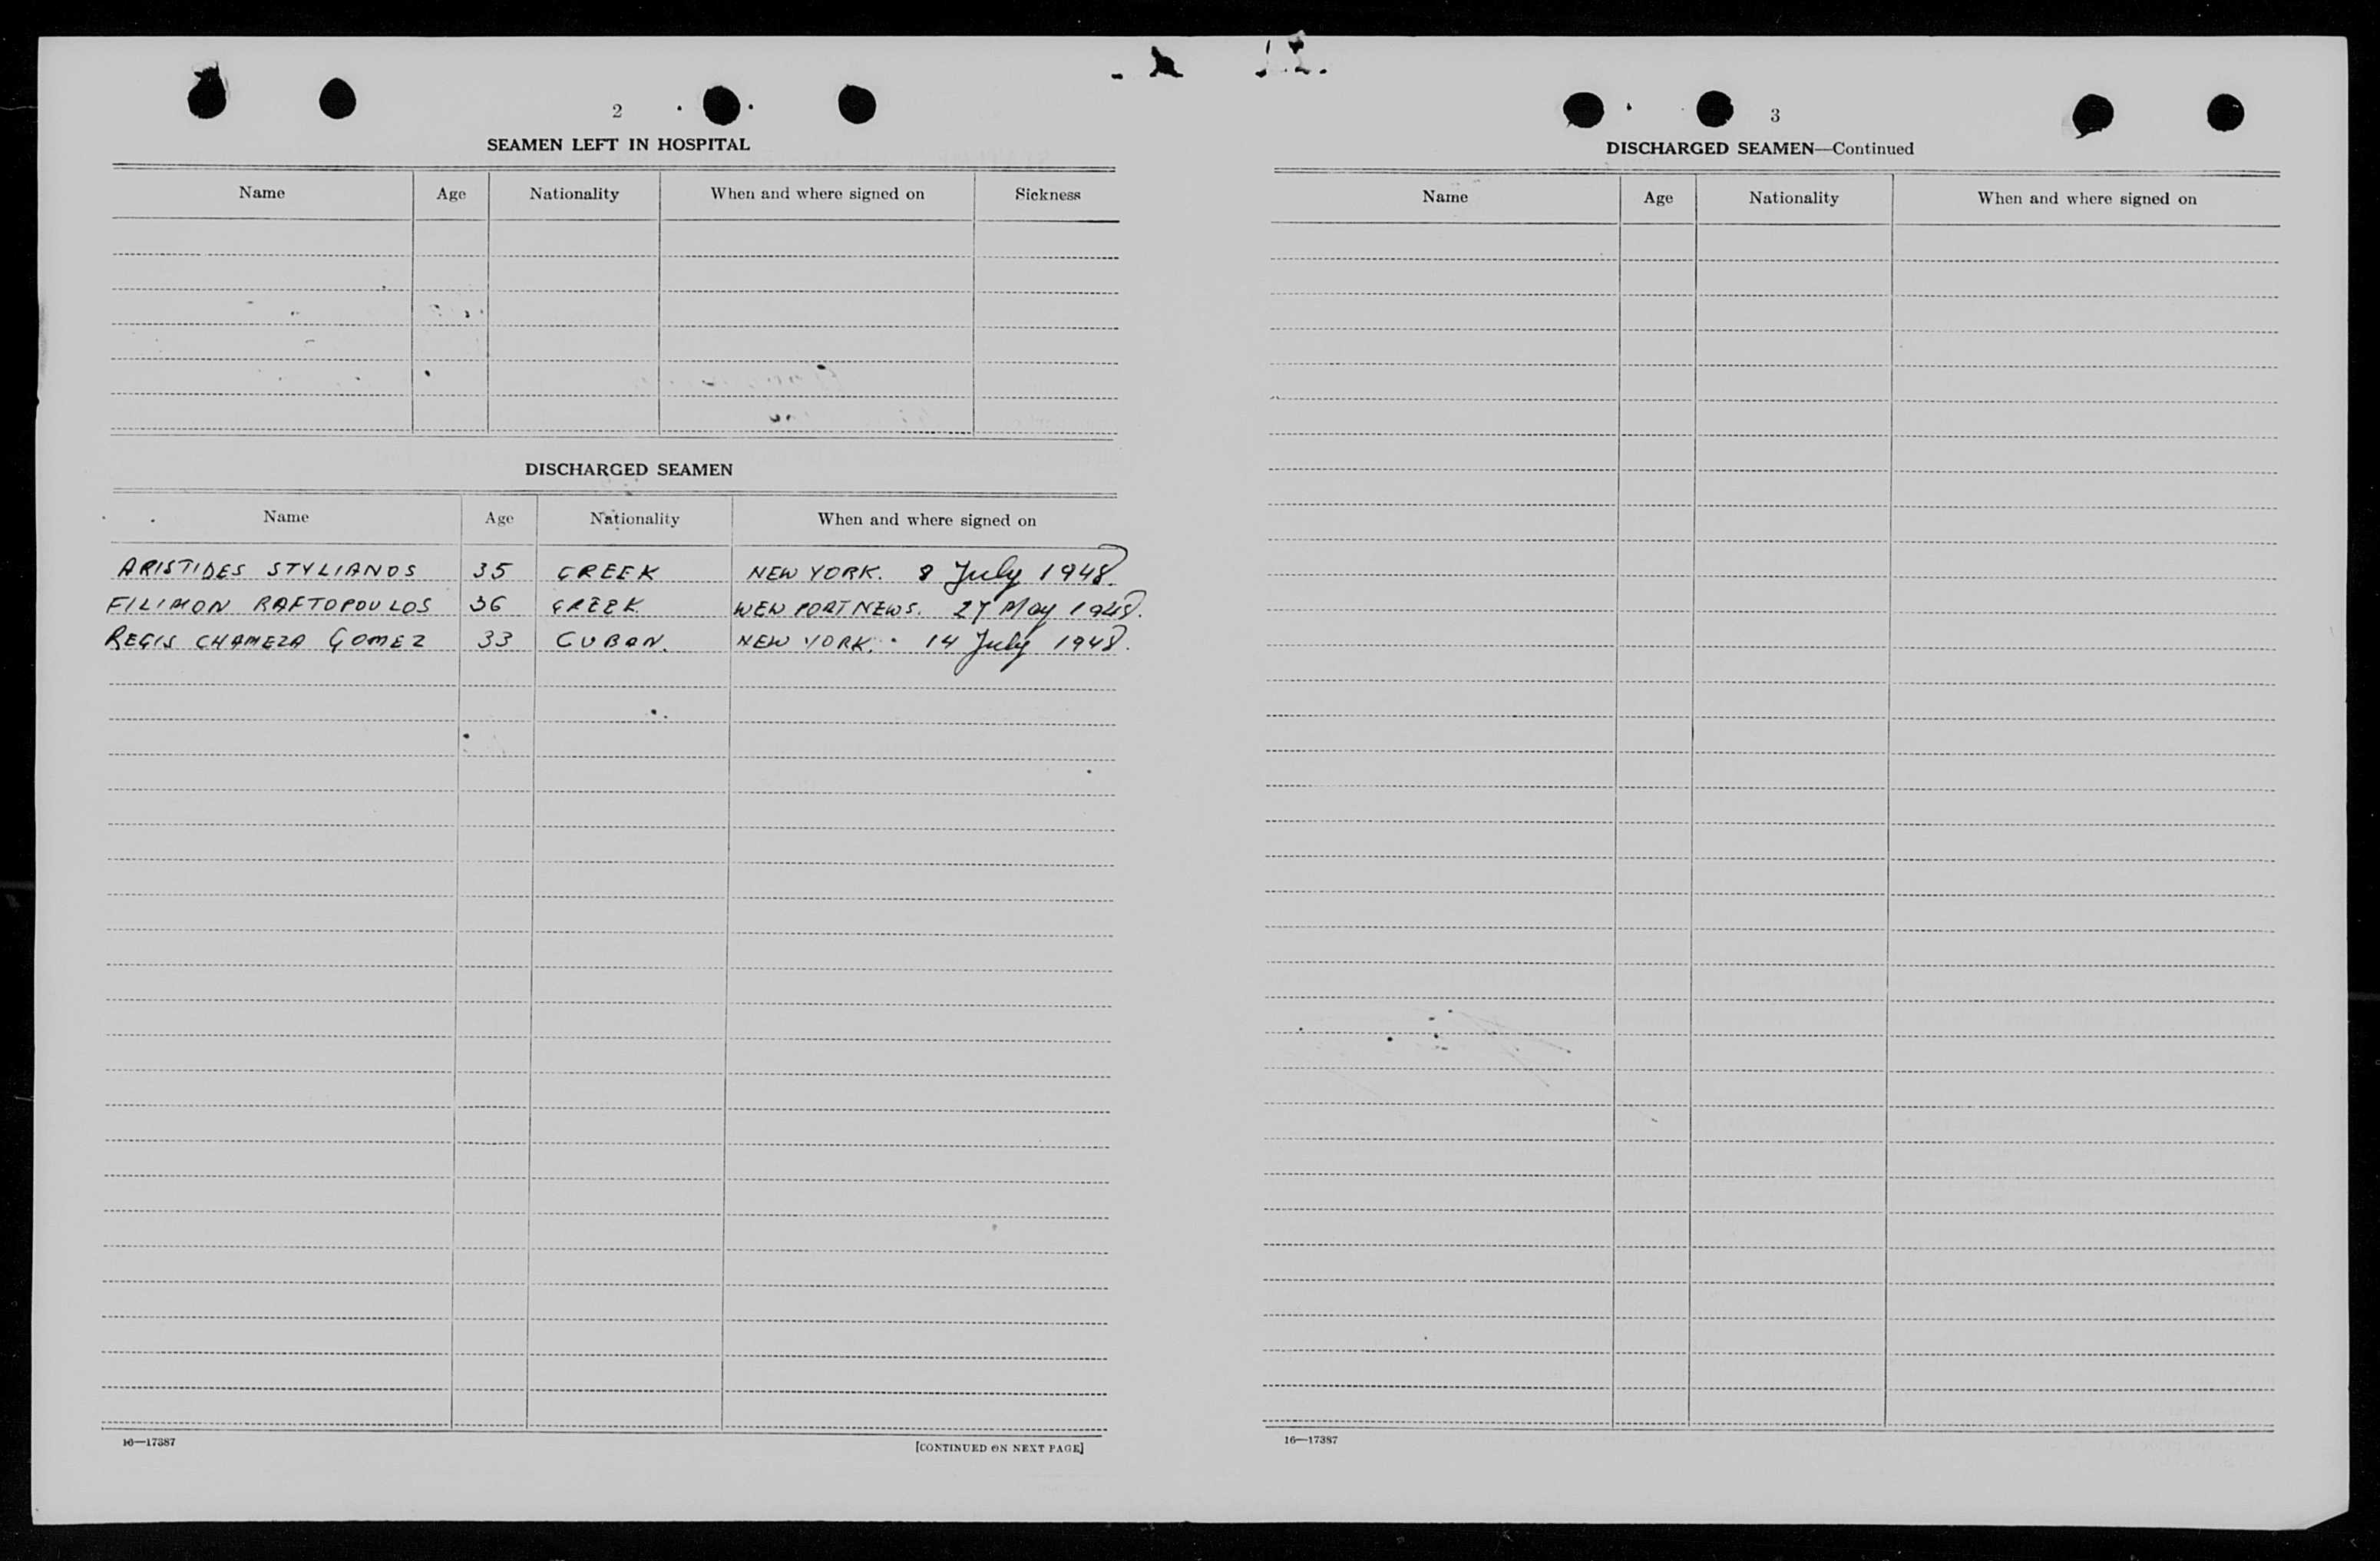 2
SEAMEN LEFT IN HOSPITAL
Name Age Nationality When and where signed on Sickness
DISCHARGED SEAMEN
Name Age Nationality When and where signed on
ARISTIDES STYLIANOS 35 GREEK NEW YORK. 8 July 1948.
FILIMON RAFTOPOULOS 36 GREEK WEN PORT NEWS. 27 May 1948.
REGIS CHAMEZA GOMEZ 33 CUBAN. NEW YORK. 14 July 1948.
16—17387 [CONTINUED ON NEXT PAGE]
3
DISCHARGED SEAMEN—Continued
Name Age Nationality When and where signed on
16—17387